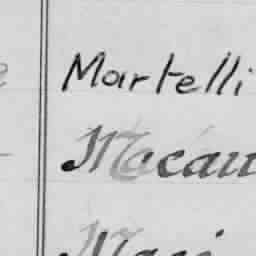 Martelli
Macau